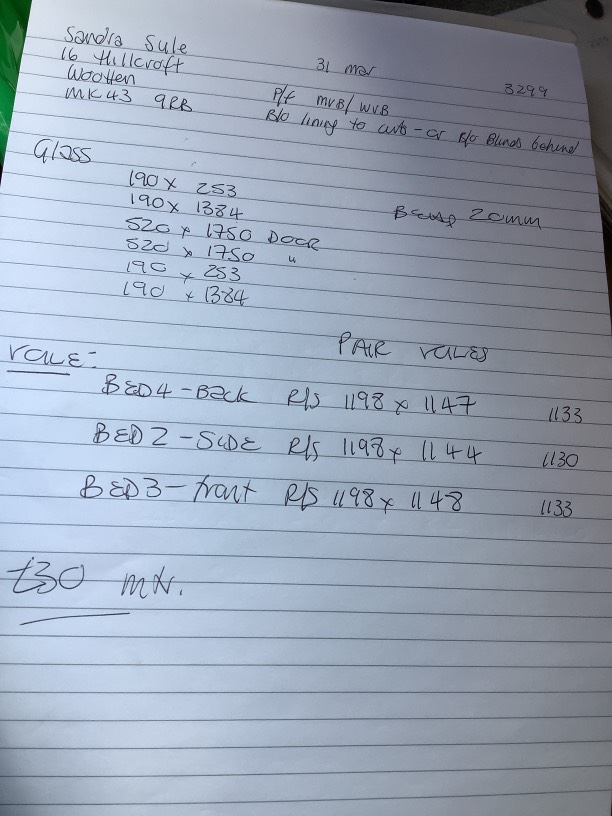 Sandra Sule
16 Hillcroft
31 mar
3299
Wootten
MK43 9RB
P/F MVB/WVB
B/O lining to curts - or R/O Blinds behind
Glass
190 x 253
190 x 1384
20mm
520 x 1750 DOOR
520 x 1750 "
190 x 253
190 x 1384
PAIR VALES
VALE:
BED4 - Back R/S 1198 x 1147 1133
BED2 - SIDE R/S 1198 x 1144 1130
BED3 - front R/S 1198 x 1148 1133
£30 mtr.